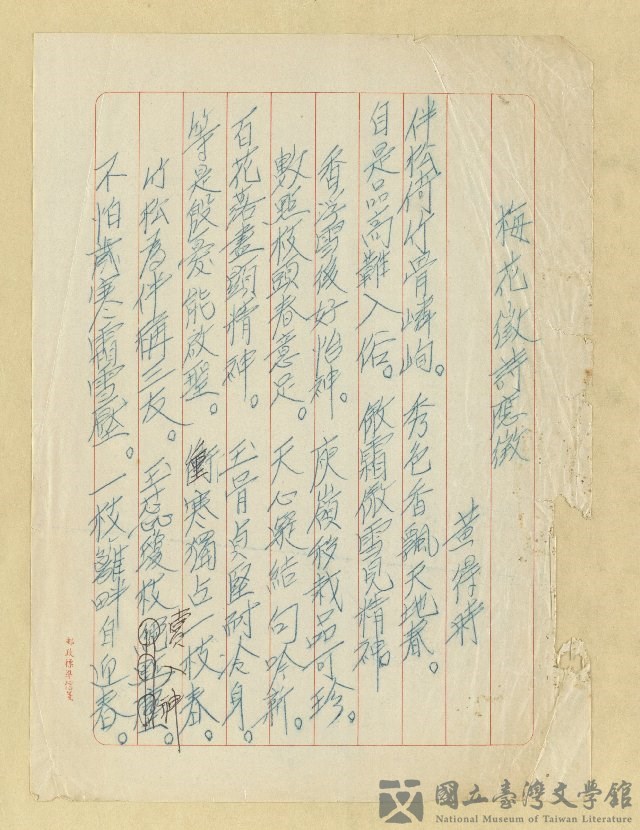 梅花徵詩應徵
黃得時
伴松倚竹骨嶙峋。秀色香飄天地春。
自是品高難入俗。傲霜傲雪見精神。
香浮雪後好怡神。庾嶺移栽品可珍。
數點枝頭春意足。天心凝結句吟新。
百花落盡顯精神。玉骨貞堅耐冷身。
等是殷憂能啟聖。衝寒獨占一枝春。
竹松為伴稱三友。玉蕊瓊枝
賣入神
不怕歲寒霜雪壓。一枝籬畔自迎春。
郵政標準信箋
國立臺灣文學館
National Museum of Taiwan Literature